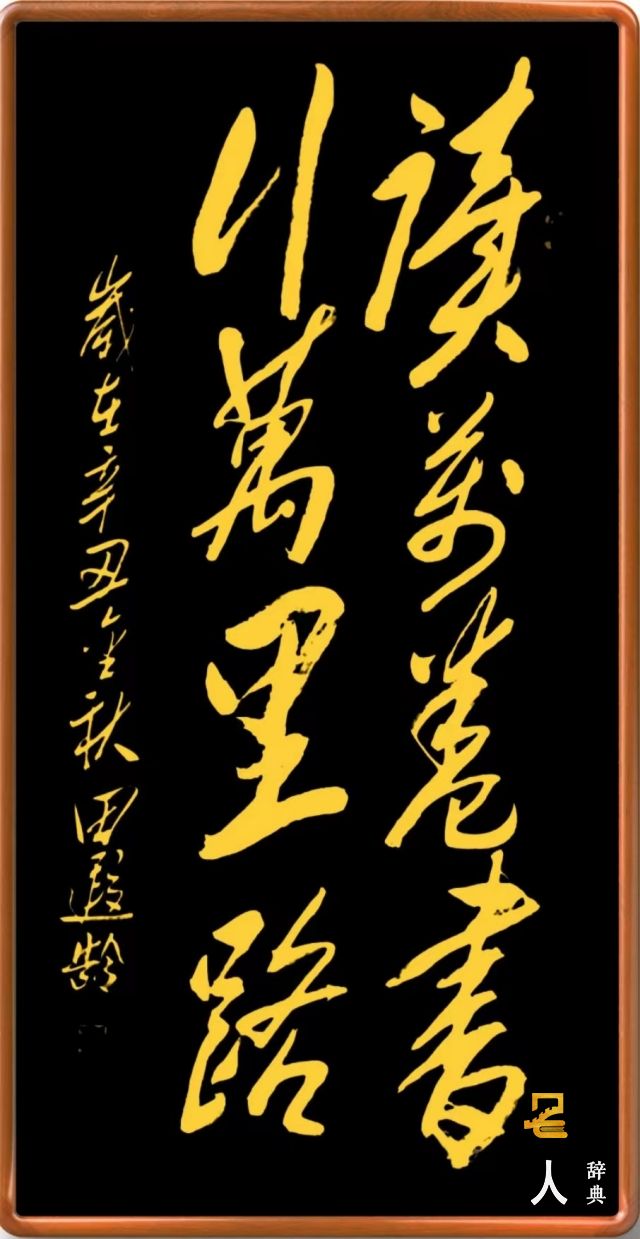 讀萬卷書
行萬里路
歲在辛丑金秋田遐龄
名人辞典